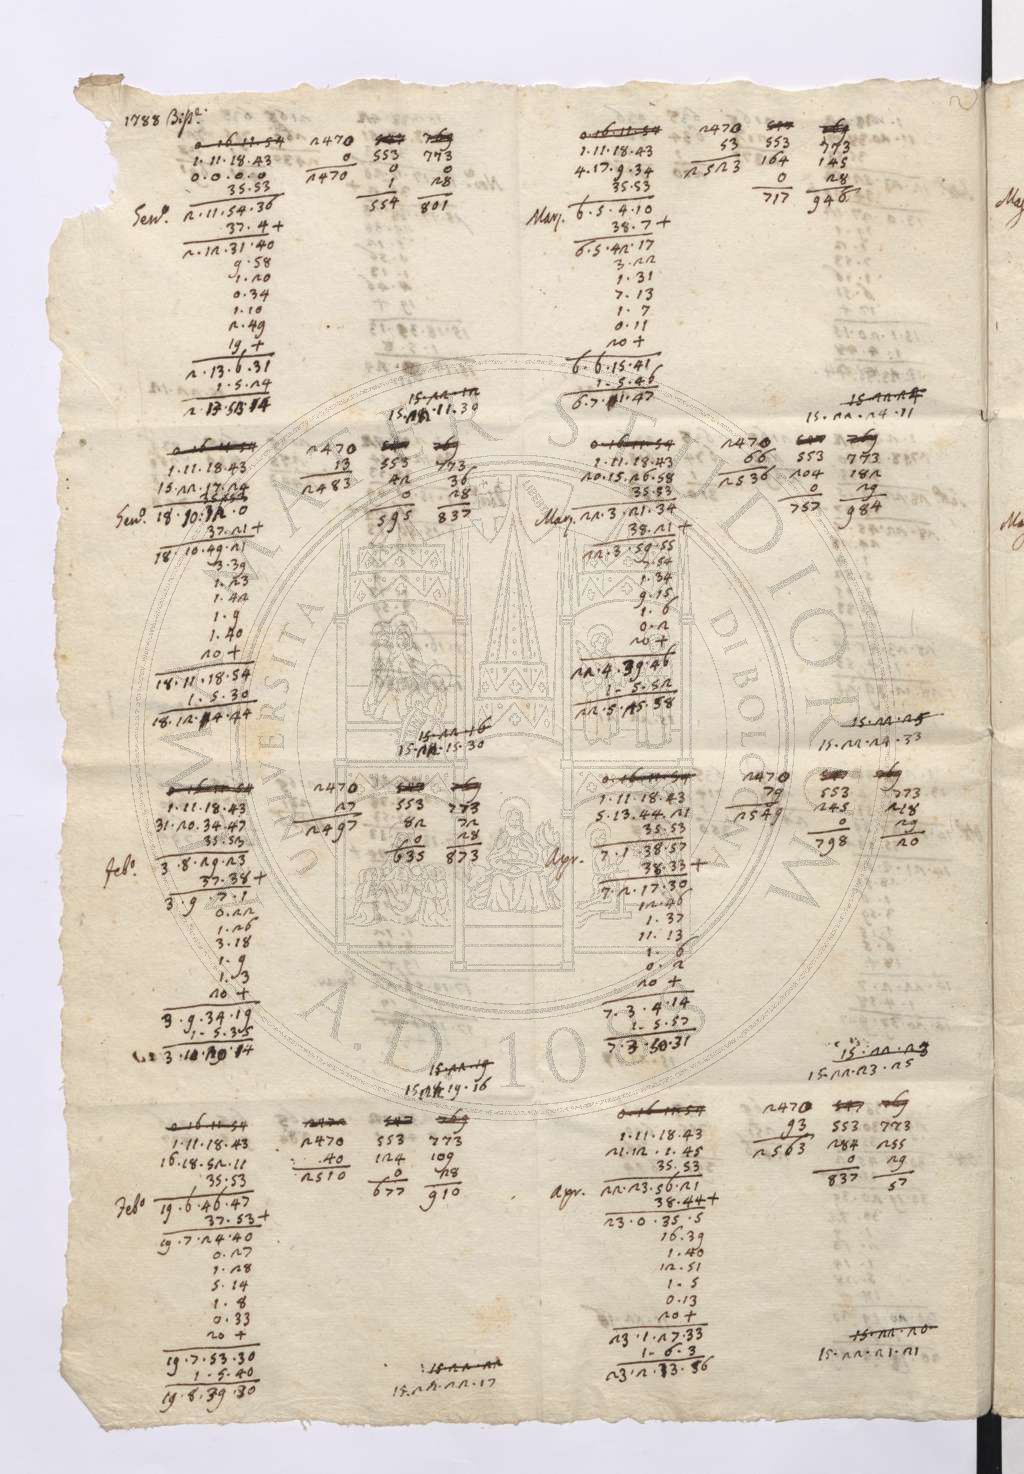 1788 Bis.e
0.16.11.54 2470 547 769
1.11.18.43 0 553 773
0.0.0.0 2470 0 0
35.53 1 28
Genn.o 2.11.54.36 554 801
37.4+
2.12.31.40
9.58
1.20
0.34
1.10
2.49
19+
2.13.6.31
1.5.24
15.22.12
15.22.11.39
0.16.11.54 2470 547 769
1.11.18.43 13 553 773
15.22.17.24 2483 42 36
35.53 0 28
Genn.o 18.10.12.0 595 837
37.21+
18.10.49.21
3.39
1.23
1.42
1.9
1.40
20+
18.11.18.54
1.5.30
18.12.14.44
15.22.16
15.22.15.30
0.16.11.54 2470 547 769
1.11.18.43 27 553 773
31.20.34.47 2497 82 72
35.53 0 28
Feb.o 3.8.29.23 635 873
37.38+
3.9.7.1
0.22
1.26
3.18
1.9
1.3
20+
3.9.34.19
1.5.35
3.10.20.14
15.22.19
15.22.19.16
0.16.11.54 547 769
1.11.18.43 2470 553 773
16.18.52.11 40 124 109
35.53 2510 0 28
Feb.o 19.6.46.47 677 910
37.53+
19.7.24.40
0.27
1.28
5.14
1.8
0.33
20+
19.7.53.30
1.5.40
19.8.39.30
15.22.22
15.22.22.17
0.16.11.54 2470 547 769
1.11.18.43 53 553 773
4.17.9.34 2523 164 145
35.53 0 28
Marz. 6.5.4.10 717 946
38.7+
6.5.42.17
3.22
1.31
7.13
1.7
0.11
20+
6.6.15.41
1.5.46
6.7.1.47
15.22.24
15.22.24.11
0.16.11.54 2470 547 769
1.11.18.43 66 553 773
20.15.26.58 2536 204 182
35.53 0 29
Marz. 22.3.21.34 757 984
38.21+
22.3.59.55
7.54
1.34
9.15
1.6
0.2
20+
22.4.39.46
1.5.52
22.5.25.38
15.22.25
15.22.24.33
0.16.11.54 2470 547 769
1.11.18.43 79 553 773
5.13.44.21 2549 245 218
35.53 0 29
Apr. 7.1.38.57 798 20
38.33+
7.2.17.30
12.46
1.37
11.13
1.6
0.2
20+
7.3.4.14
1.5.57
7.3.50.31
15.22.23
15.22.23.25
0.16.11.54 2470 547 769
93 553 773
1.11.18.43 2563 284 255
21.12.1.45 0 29
35.53 837 57
Apr. 22.23.56.21
38.44+
23.0.35.5
16.39
1.40
12.51
1.5
0.13
20+
23.1.27.33
1.6.3
23.2.33.36
15.22.20
15.22.21.21